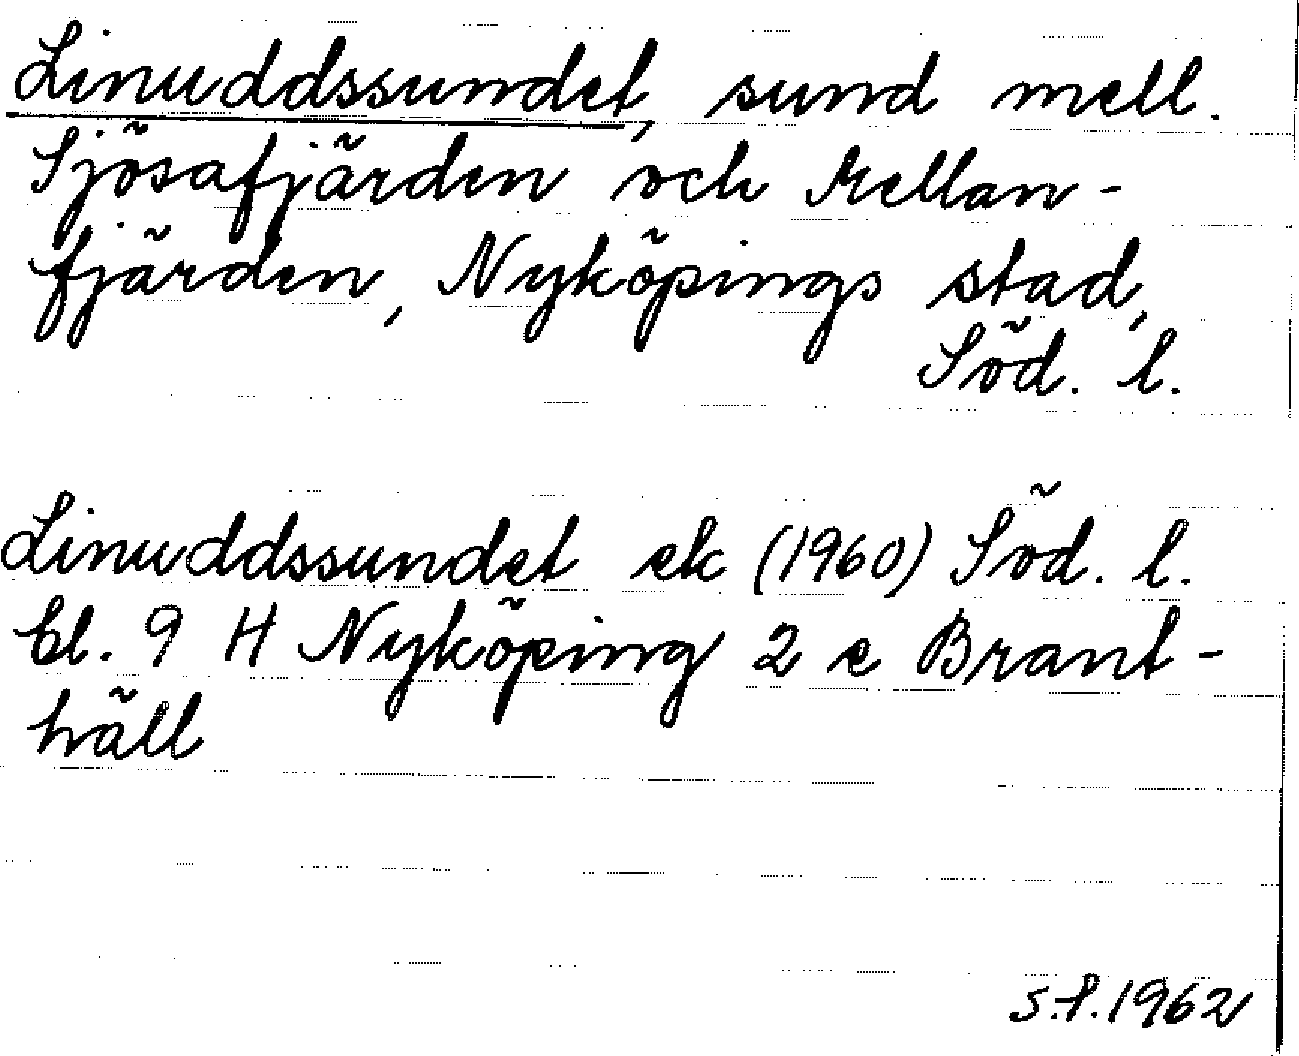 Linuddssundet, sund mell.
Sjösafjärden och Mellan-
fjärden, Nyköpings stad,
Söd. l.
Linuddssundet ek (1960) Söd. l.
Bl. 9 H Nyköping 2 e Brant-
häll
S.F. 1962